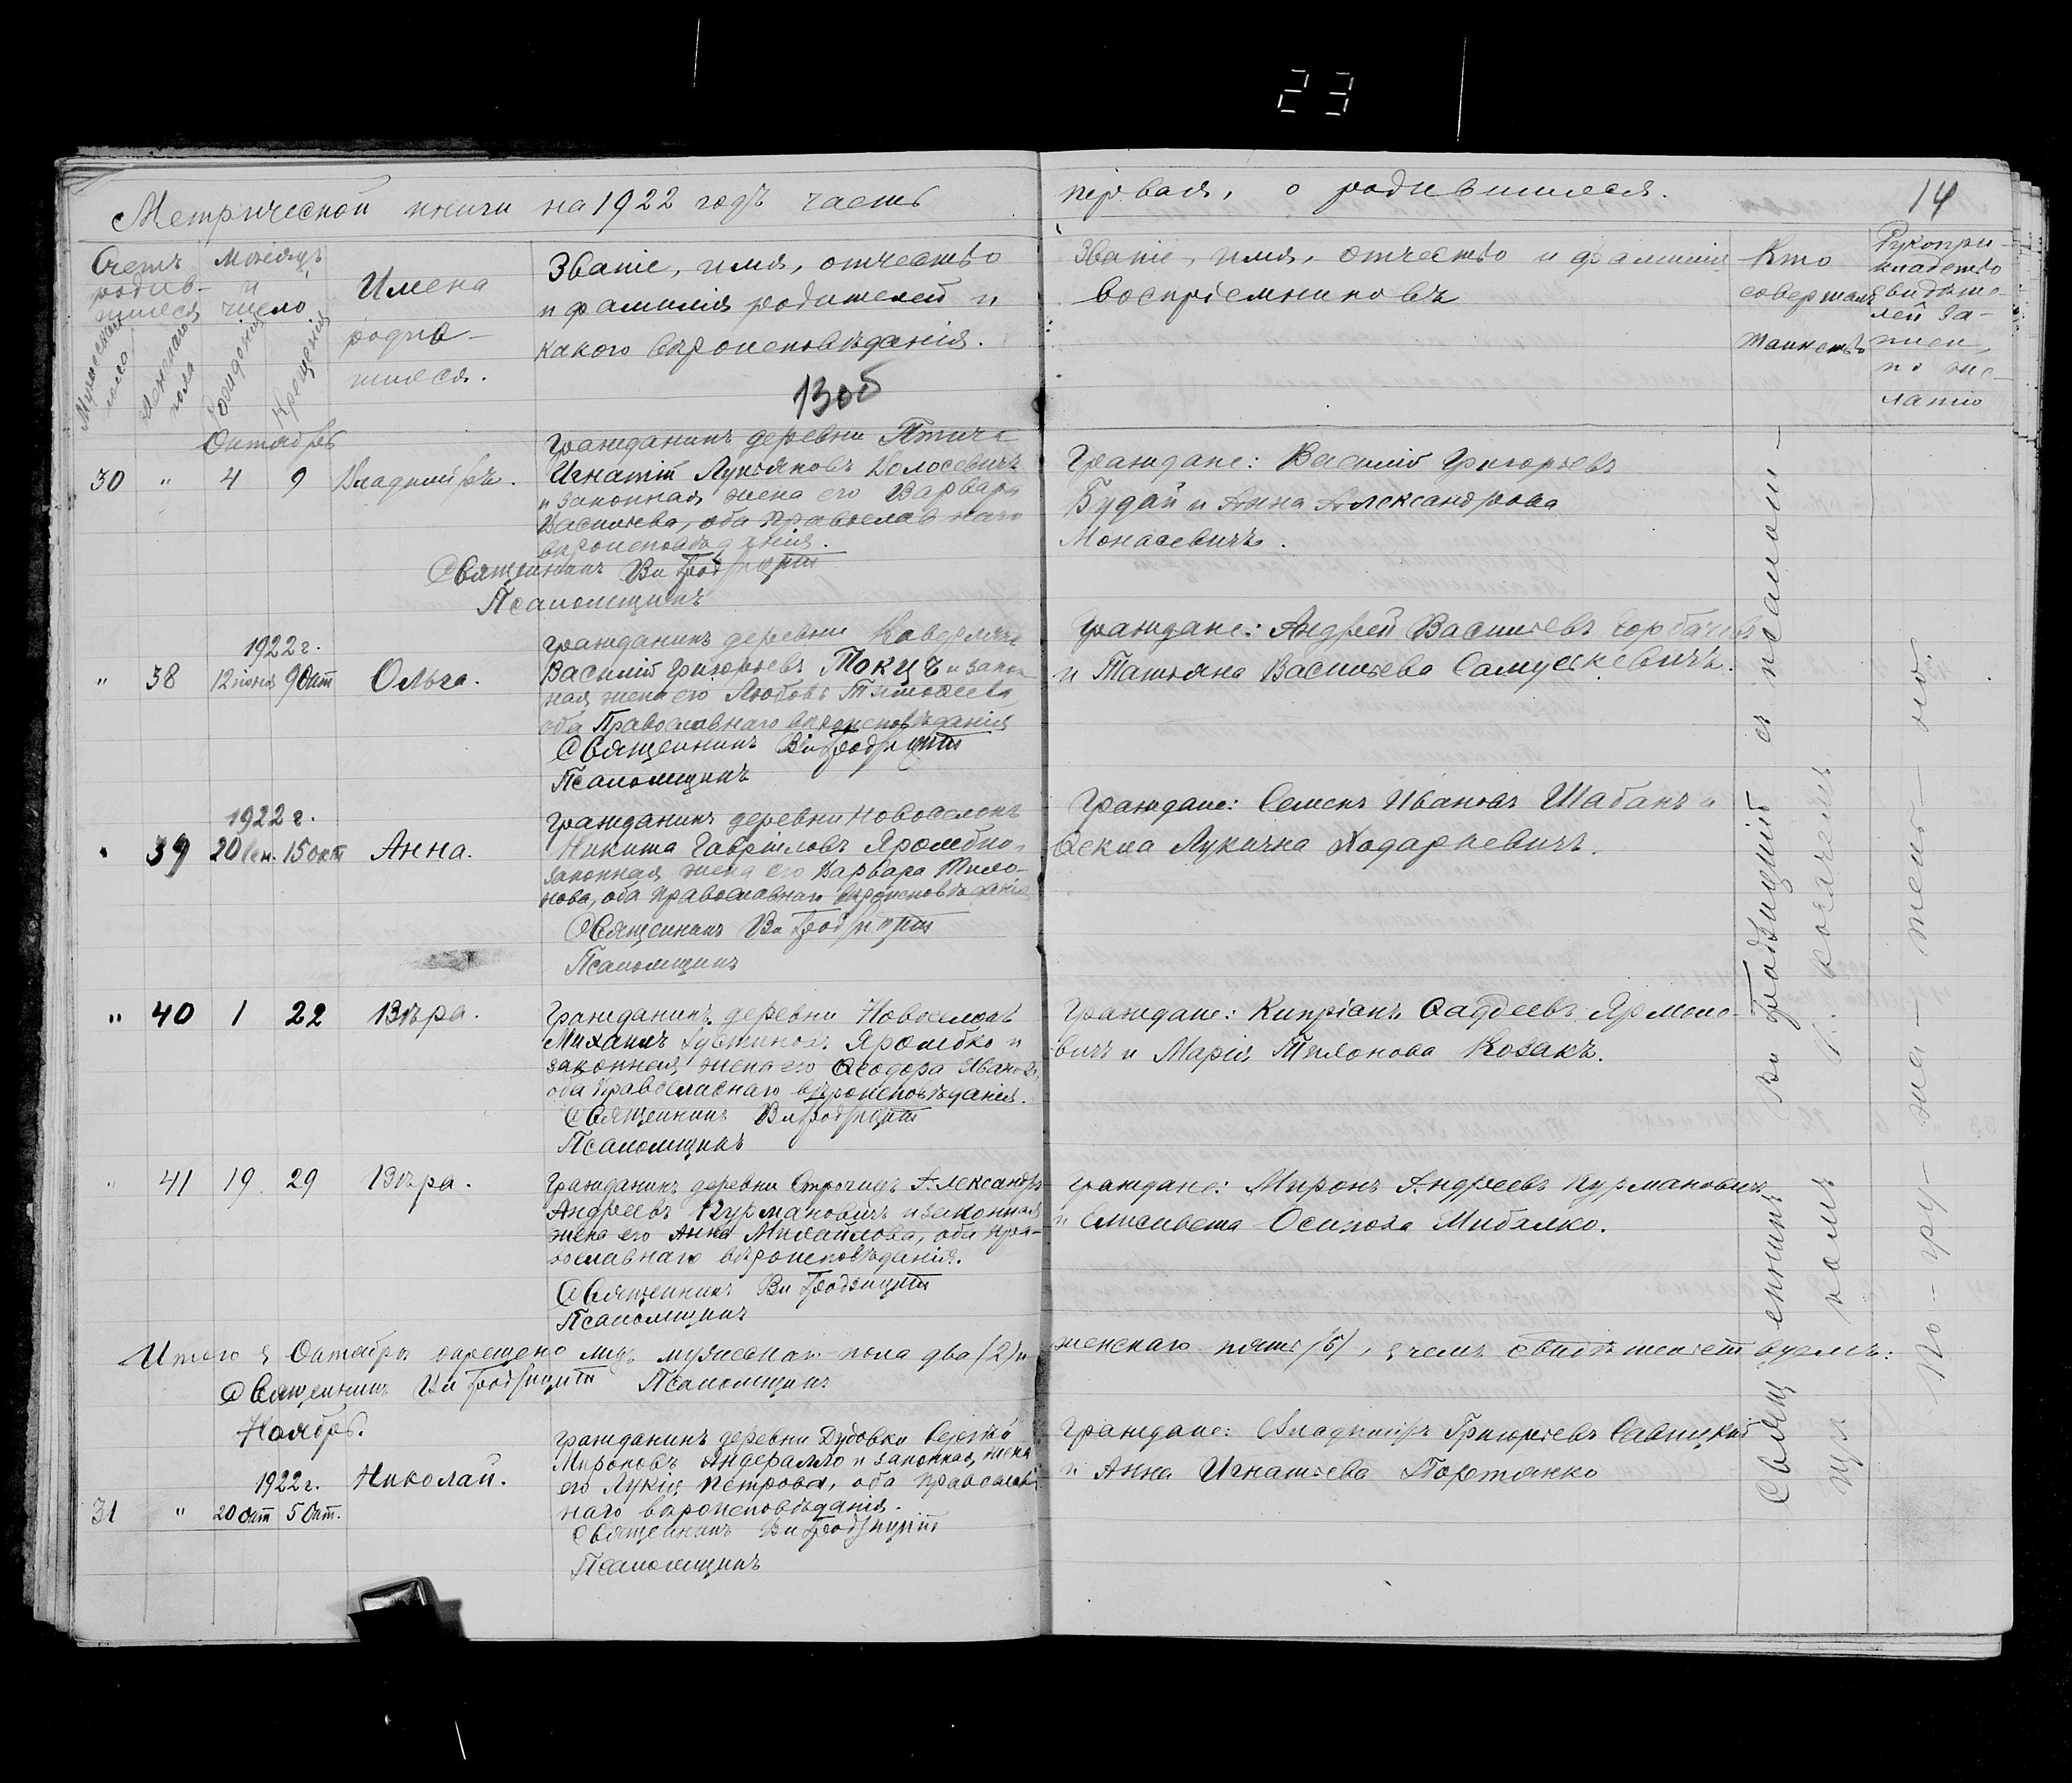 23
14
Метрической книги на 1922 годъ часть первая, о родившихся.
Счетъ родив-
шихся
Мужескаго пола
Женскаго пола
Месяцъ
и
число
Рождения
Крещенія
Имена
родив-
шихся.
Званіе, имя, отчество
и фамилія родителей и
какого вѣроисповѣданія.
Званіе, имя, отчество и фамилія
воспріемниковъ
Кто
совершалъ
таинство
Рукопри-
кладство
свидѣте-
лей за-
писи,
по же-
ланію
130б
Октябрь
30 " 4 9 Владиміръ.
Гражданинъ деревни Птичь
Игнатій Лукьяновъ Колосевичъ
и законная жена его Варвара
Васильева, оба православнаго
вѣроисповѣданія.
Священникъ
Псаломщикъ
Граждане: Василій Григорьевъ
Будай и Анна Александрова
Монасевичъ.
1922 г.
" 38 12 іюня 9 Окт Ольга.
Гражданинъ деревни
Василій Григорьевъ Токиъ и закон-
ная жена его Любовь Тимофеева
оба Православнаго вѣроисповѣданія
Священникъ
Псаломщикъ
Граждане: Андрей Васильевъ Горбачевъ
и Татьяна Васильева Самускевичъ.
1922 г.
" 39 20 Сен. 15 окт Анна.
Гражданинъ деревни Новоселокъ
Никита Гавріиловъ Яромбко,
законная жена его Варвара
нова, оба православнаго вѣроисповѣданія
Священникъ
Псаломщикъ
Граждане: Семенъ Ивановъ Шабанъ и
Ѳекла Лукична Ходаркевичъ.
" 40 1 22 Вѣра.
Гражданинъ деревни Новоселокъ
Михаилъ Густиновъ Яромбко и
законная жена его Ѳеодора Иванова,
оба Православнаго вѣроисповѣданія.
Священникъ
Псаломщикъ
Граждане: Кипріанъ Ѳаддеевъ Ярмоло-
вичъ и Марія Козакъ.
" 41 19 29 Вѣра.
Гражданинъ деревни Строчицъ Александръ
Андреевъ Курмановичъ и законная
жена его Анна Михайлова, оба пра-
вославнаго вѣроисповѣданія.
Священникъ
Псаломщикъ
Граждане: Миронъ Андреевъ Курмановичъ
и Елисавета Осипова Михалко.
Итого в Октябрѣ окрещено лицъ мужескаго пола два (2) и женскаго пять (5), в чемъ свидѣтельствуемъ:
Священникъ Псаломщикъ
Ноябрь.
1922 г.
31 " 20 окт 5 Окт. Николай.
Гражданинъ деревни Дубовки Сергѣй
Мироновъ Андерало и законная жена
его Лукія Петрова, оба православ-
наго вѣроисповѣданія.
Священникъ
Псаломщикъ
Граждане: Владиміръ Григорьевъ Савицкій
и Анна Игнатьева
Священникъ съ псаломщикомъ
По-гра-